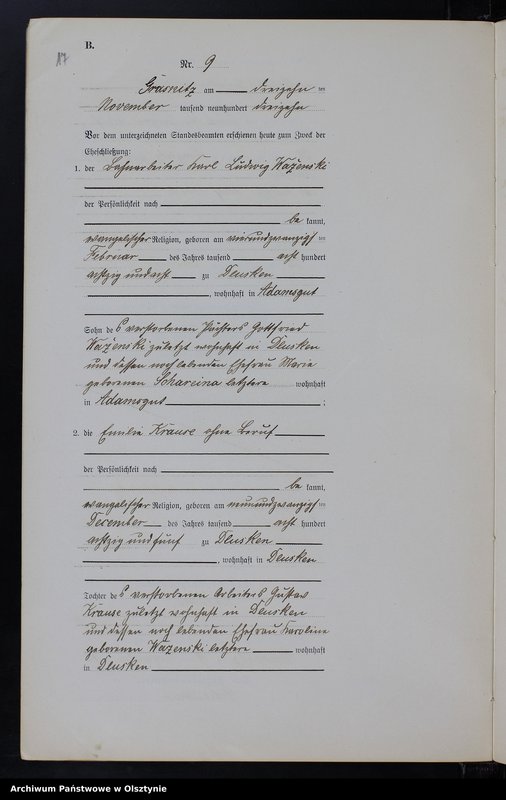 17
B.
Nr. 9
Grasnitz am dreizehn ten
November tausend neunhundert dreizehn
Vor dem unterzeichneten Standesbeamten erschienen heute zum Zweck der
Eheschließung:
1. der Bahnarbeiter Karl Ludwig Wazenski
der Persönlichkeit nach
be kannt,
evangelischer Religion, geboren am vierundzwanzigs ten
Februar des Jahres tausend acht hundert
achtzig und acht zu Deusken
, wohnhaft in Adamsgut
Sohn des verstorbenen Pächters Gottfried
Wazenski zuletzt wohnhaft in Deusken
und dessen noch lebenden Ehefrau Marie
geborenen letztere wohnhaft
in Adamsgut ;
2. die Emilie Krause ohne Beruf
der Persönlichkeit nach
be kannt,
evangelischer Religion, geboren am neunundzwanzigs ten
December des Jahres tausend acht hundert
achtzig und fünf zu Deusken
, wohnhaft in Deusken
Tochter des verstorbenen Arbeiters Gustav
Krause zuletzt wohnhaft in Deusken
und dessen noch lebenden Ehefrau Karoline
geborenen Wazenski letztere wohnhaft
in Deusken
Archiwum Państwowe w Olsztynie